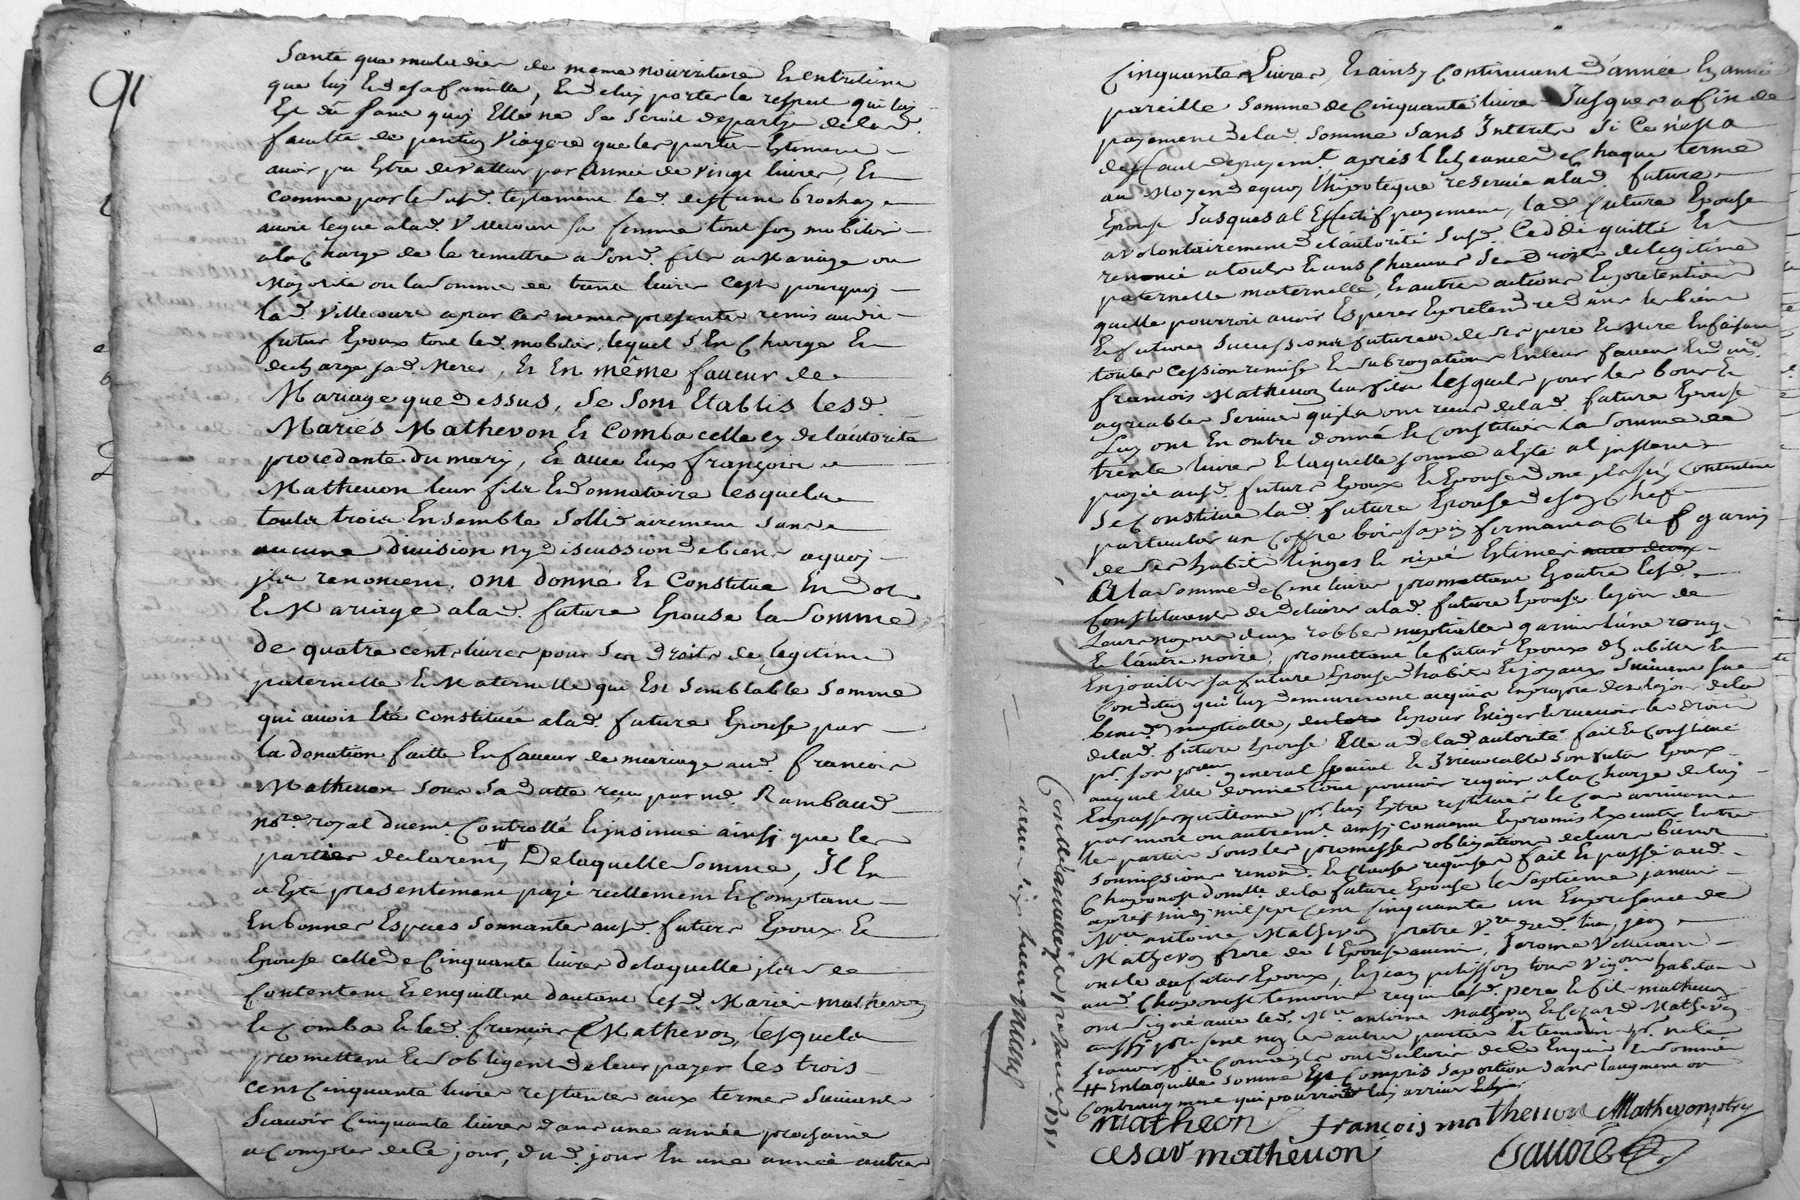 91
Santé que maladie de meme nourriture Et entretient
que luy Et desa famille, Et de luy porter le respect qui luy
Est dû sans quoy Elle ne Se Seroit departye delad.
faculté de pention Viagere que les parties Estiment
avoir pu Estre de valleur par année de vingt livres, Et
comme par le susd. testament led. deffunt brochay
avoit legué alad. Villecourt sa femme tout son mobilier
ala Charge de le remettre a Son d. fils a Mariage ou
Majorité ou la Somme de trente livres Cest pourquoy
Lad. Villecourt apar ces memes presentes remis audit
futur Epoux tout led. mobilier, lequel s'En Charge Et
decharge sad. Mere, Et En même faveur de
Mariage que dessus, Se Sont Etablis lesd.
Mariés Mathevon Et Comba celle cy de lautorité
procedante du mary, Et avec Eux françois
Mathevon leur fils Et donnatoire lesquels
touts trois Ensemble Sollidairement Sans
aucune division ny discussion de biens aquoy
ils renoncent, ont donné Et Constitué En dot
Et Mariage alad. future Epouse la Somme
De quatre cent livres pour Ses Droits de legitime
paternelle Et Maternelle qui Est Semblable Somme
qui avoit Eté constituée alad. future Epouse par
la donation faitte En faveur de mariage aud. françois
Mathevon Sous Sa datte reçu par Me. Rambaud
Nore. royal duemt. Controllé Et insinué ainsi que les
parties declarent, # De laquelle Somme, Il En
a Esté presentement payé reellement Et Comptant
En bonnes Especes Sonnantes ausd. futurs Epoux Et
Epouse celle de Cinquante livres de laquelle ils se
Contentent Et enquittent d'autant lesd. Mariés Mathevon
Et Comba Et led. françois Mathevon, lesquels
promettent Et Sobligent de leur payer les trois
cent Cinquante livres restantes aux termes Suivants
Scavoir Cinquante livres dans une année prochaine
a Compter de Ce jour, dud. jour En une année autres
Cinquante Livres, Et ainsy Continuant d'année En année
pareille Somme de Cinquante livres Jusques a fin de
payement delad. Somme Sans Interets Si Ce n'est a
deffaut de payemt. après l'Echeance de Chaque terme
au Moyen de quoy l'hipoteque reservée alad. future
Epouse Jusques al Effectif payement, lad. future Epouse
a volontairement de l'autorité Susd. Ceddé quitté Et
renoncé a touts Et uns Chacuns Ses Droits de legitime
paternelle maternelle, Et autres actions Et pretentions
quelle pourroit avoir Esperer Et pretendre dans les biens
Et future Succession future de Ses pere Et Mere En faisant
toutes Cession remise Et Subrogations En leur faveur Et dud.
françois Mathevon leur fils lesquels pour les bons Et
agreables Services quils ont reçus delad. future Epouse
Luy ont En outre donné Et Constitué la Somme de
trente livres Et laquelle Somme a Eté al jnstant
payée ausd. futurs Epoux Et Epouse dont ils Sont Contents
Se Constitue lad. future Epouse de Son Chef
particulier un Coffre bois sapin fermant a Clef garny
de Ses habits linges Et Estimés
A la Somme de Cent livres promettant En outre lesd.
Constituants de delivrer alad. future Epouse le jour de
Leurs nopces deux robbes nuptialles garnies l'une rouge
Et l'autre noire, promettant le futur Epoux d'habiller Et
Enjoailler sa future Epouse d'habits Et joyaux Suivant sa
Condition qui luy demeureront acquis En propre des le jour dela
bened.on nuptialle, Et pour Exiger Et recevoir les droits
delad. future Epouse Elle a delad. autorité fait Et Constitué
pr. son general Special Et Irrevocable Son futur Epoux
auquel Elle donne tout pouvoir requis ala Charge de luy
En passer quittance pr. luy Estre restitués le Cas arrivant
par mort ou autremt. ainsi Convenu Et promis Executer Entre
les parties Sous les promesses obligations de leurs biens
Soumissions renonc. Et Clauses requises fait Et passé aud.
Chaponost domicile de la future Epouse le Septieme janvier
apres midy mil Sept cent Cinquante un En presence de
Mre. antoine Mathevon pretre Vre. dud. lieu, jean
Mathevon frere de l'Epouse avenir, jerome Villecourt
oncle du futur Epoux, Et jean pelisson tous habitants
aud. Chaponost temoins requis lesd. pere Et fils mathevon
ont Signé avec led. Mre. antoine Mathevon Et Cesard Mathevon
aussi present non les autres parties Et temoins pr. ne le
Scavoir faire comme ils ont declaré de Ce Enquis Et Sommés
# En laquelle Somme Est Compris Saportion dans laugment ou
Contraugment qui pourroit luy arriver
Mathevon françois mathevon AMathevon ptre
cesar mathevon Savoie
Controllé a 1751